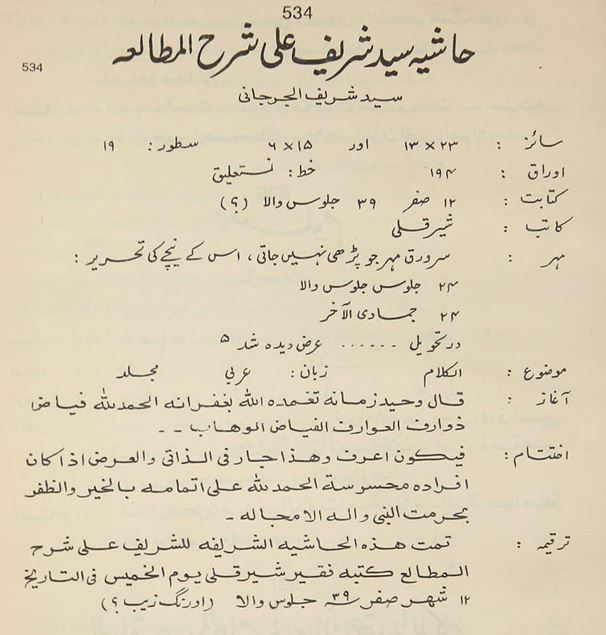 534
حاشیہ سید شریف علی شرح المطالعہ
534
سید شریف الجرجانی
سائز : ۲۳×۱۳ اور ۱۵×۶ سطور : ۱۹
اوراق : ۱۹۴ خط : نستعلیق
کتابت : ۱۲ صفر ۳۹ جلوس والا (؟)
کاتب : شیرقلی
مہر : سرورق مہر جو پڑھی نہیں جاتی ، اس کے نیچے کی تحریر :
۲۴ جلوس جلوس والا
۲۴ جمادی الآخر
در تحویل ...... عرض دیدہ شد ۵
موضوع : الکلام زبان : عربی مجلد
آغاز : قال وحید زمانہ تغمدہ اللہ بغفرانہ الحمد للہ فیاض
ذوارف العوارف الفیاض الوھاب - -
اختتام : فیکون اعرف وھذا جار فی الذاتی والعرض اذا کان
افرادہ محسوسۃ الحمد للہ علی اتمامہ بالخیر والظفر
بحرمت النبی والہ الامجالہ -
ترقیمہ : تمت ھذہ الحاشیہ الشریفہ للشریف علی شرح
المطالع کتبہ فقیر شیرقلی یوم الخمیس فی التاریخ
۱۲ شھر صفر ۳۹ جلوس والا (اورنگ زیب ؟)